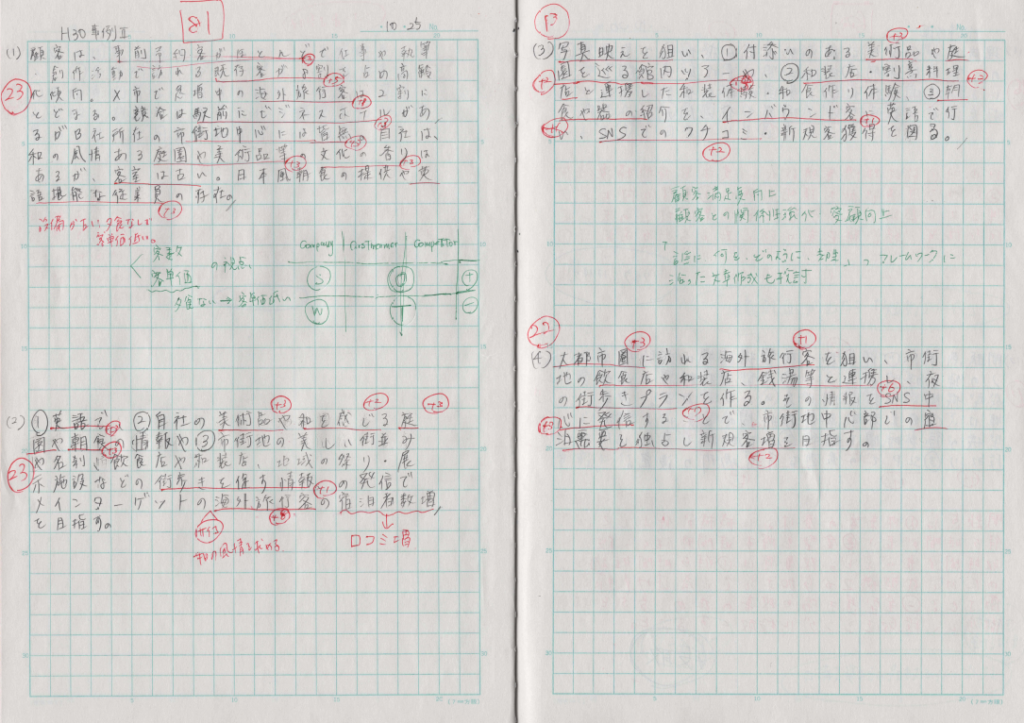 H30 事例Ⅱ
81
10.25
(1) 顧客は、事前予約客がほとんどで仕事や執筆
・創作活動で訪れる既存客が8割を占め高齢
23
化傾向。X市で急増中の海外旅行客は2割に
とどまる。競合は駅前にビジネスホテルがあ
るがB社所在の市街地中心には皆無。自社は、
和の風情ある庭園や美術品等の文化の香りは
あるが、客室は古い。日本風朝食の提供や英
語堪能な従業員の存在。
設備が古い夕食なしが
客単価低い。
客数
客単価
の視点、
夕食ない→客単価低い
Company Customer Competitor
S O +
W T −
(2) ①英語で、②自社の美術品や和を感じる庭
園や朝食の情報や③市街地の美しい街並み
23
や名刹、飲食店や和装店、地域の祭り・展
示施設などの街歩きを促す情報の発信で
メインターゲットの海外旅行客の宿泊者数増
を目指す。
和の風情を求める
口コミ増
(3) 写真映えを狙い、①付添いのある美術品や庭
園を巡る館内ツアーや、②和装店・割烹料理
店と連携した和装体験・和食作り体験、③朝
食や器の紹介を、インバウンド客に英語で行
い、SNSでのクチコミ・新規客獲得を図る。
顧客満足度向上
顧客との関係性強化 愛顧向上
「誰に、何を、どのように、効果」のフレームワークに
沿った文章作成も検討
22
(4) 大都市圏に訪れる海外旅行客を狙い、市街
地の飲食店や和装店、銭湯等と連携し、夜
の街歩きプランを作る。その情報をSNS中
心に発信することで、市街地中心部での宿
泊需要を独占し新規客増を目指す。